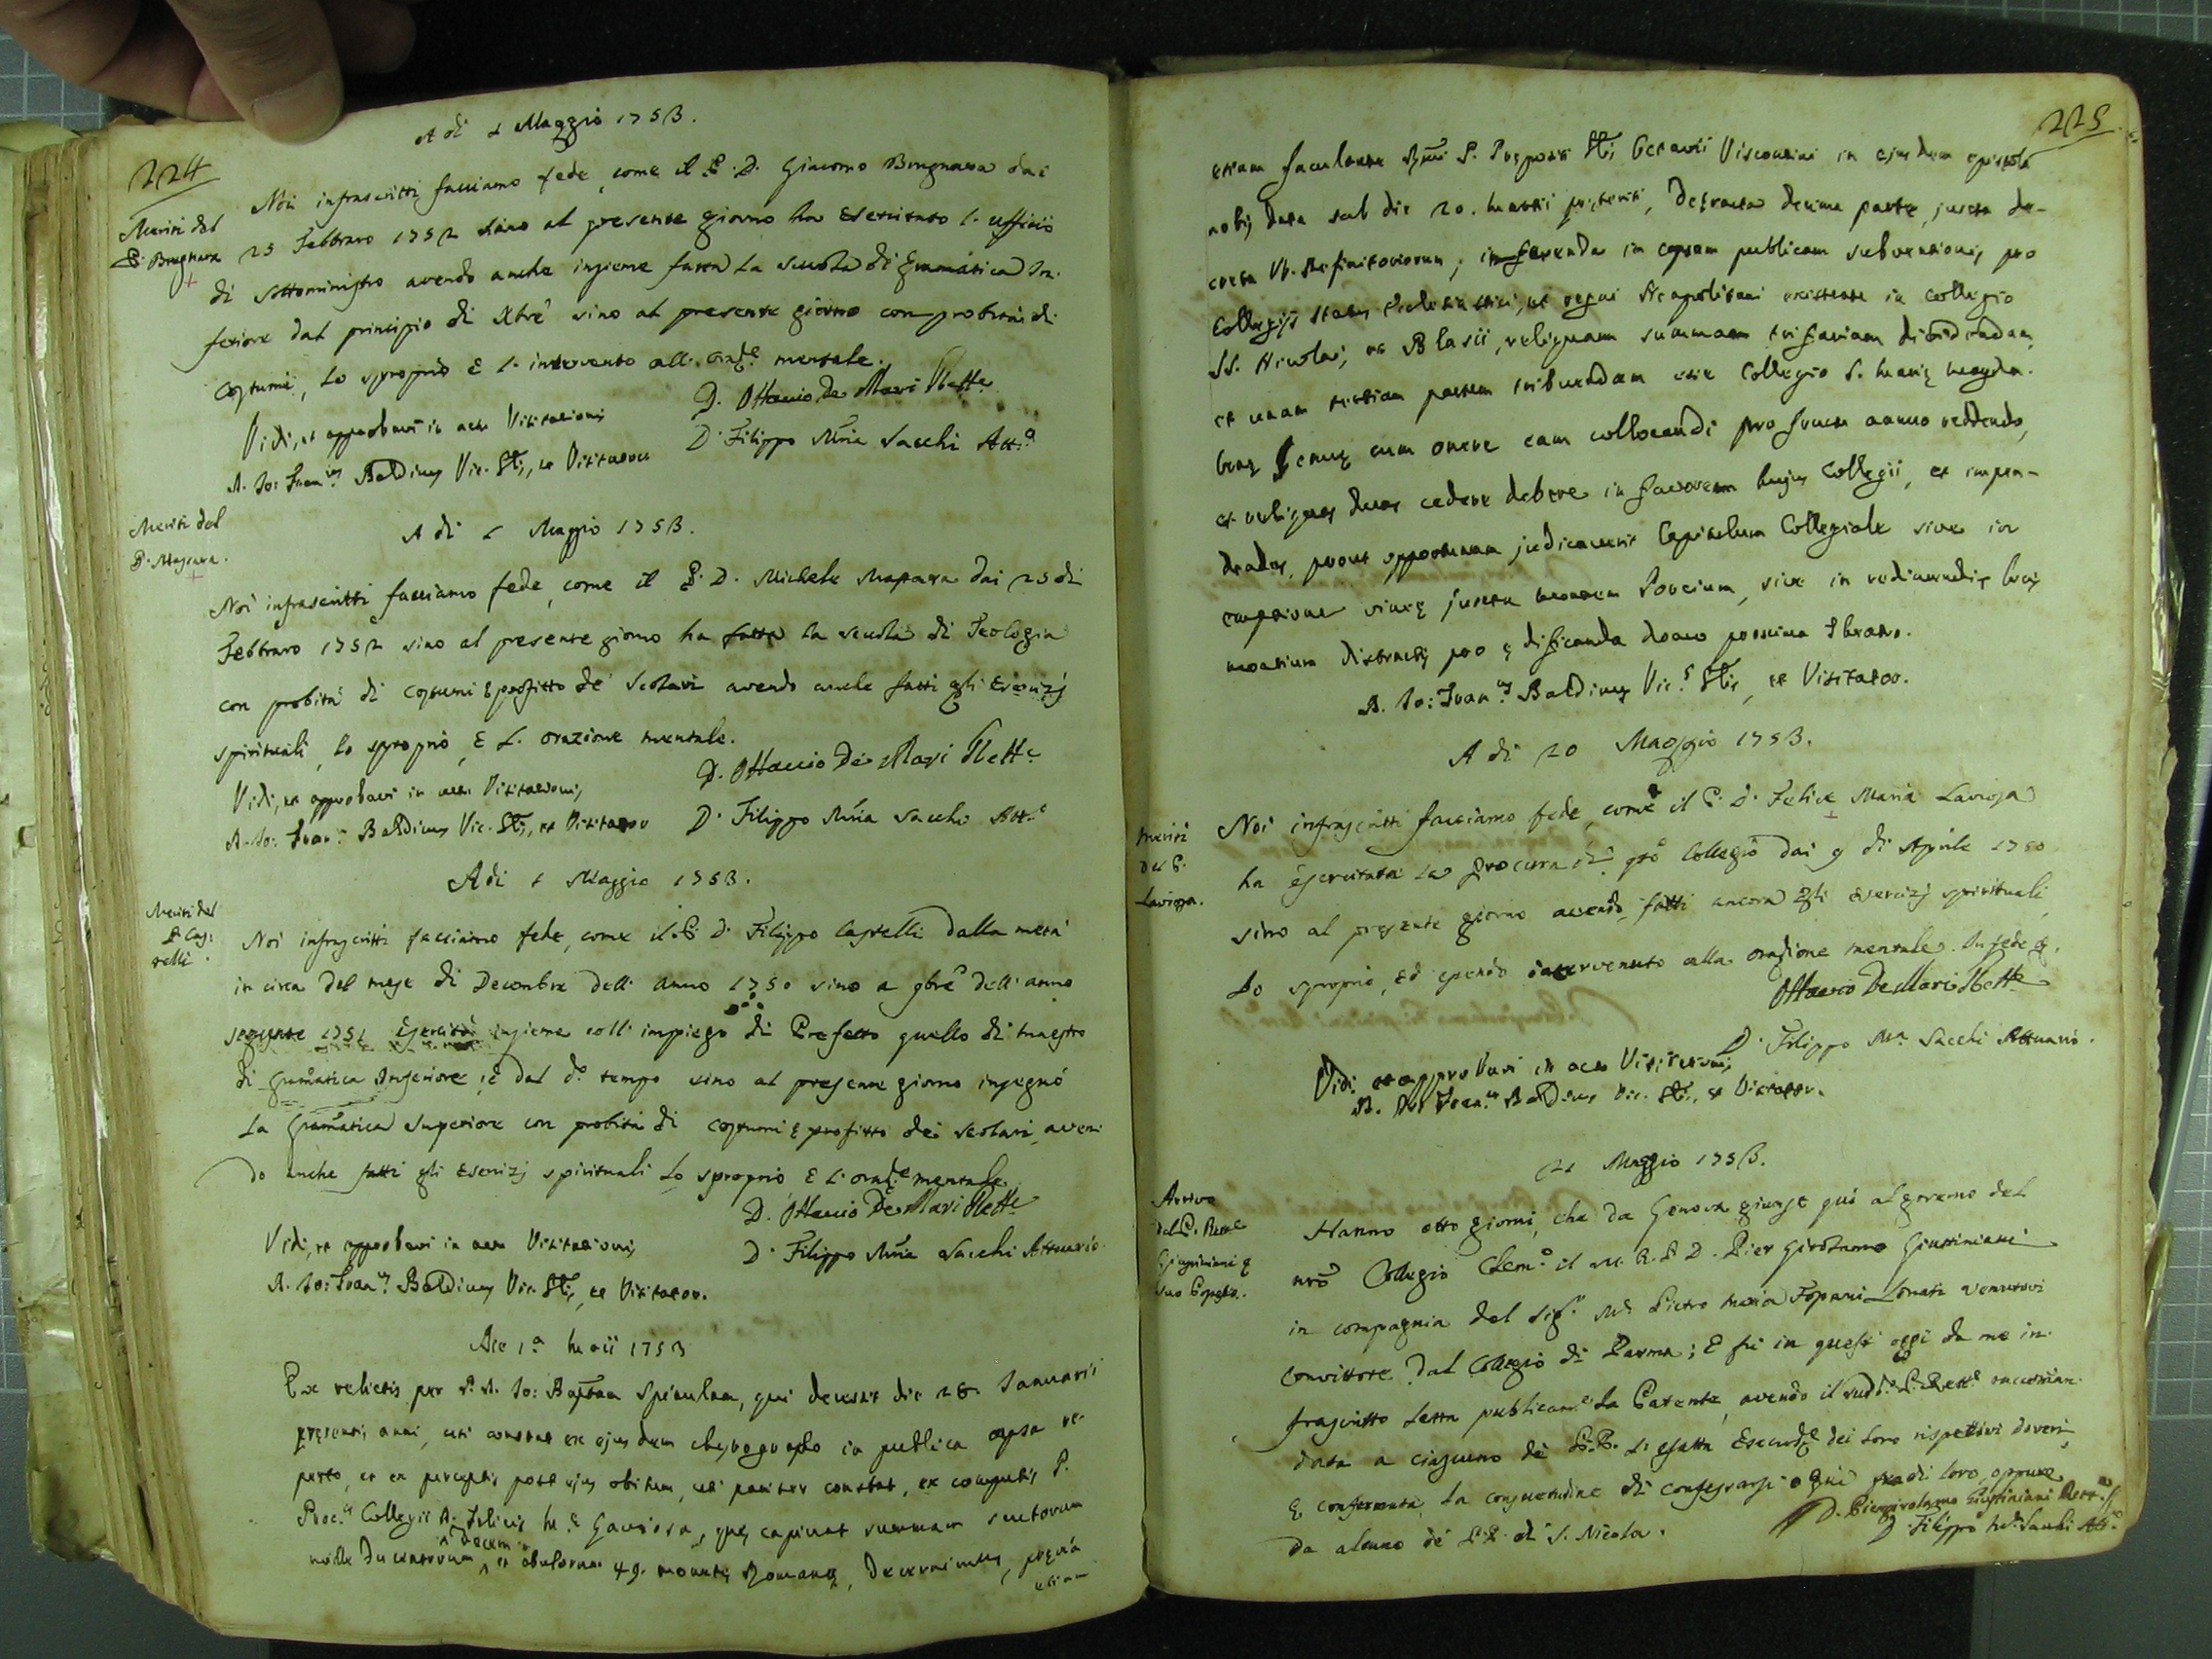 224
A di 1 Maggio 1753.
Meriti del
P. Brugnara
Noi infrascritti facciamo fede, come il P. D. Giacomo Brugnara dai
25 Febbraro 1752 sino al presente giorno ha esercitato l'ufficio
di sottoministro avendo anche insieme fatta la scuola di Gramatica In-
feriore dal principio di Xbrè sino al presente giorno con probità di
costumi, lo sproprio e l'intervento all'oraz.e mentale.
D. Ottavio De Mari Rett.e
Vidi, et approbavi in actu Visitationis
D. Filippo Mria Sacchi Att.o
D. Jo: Fran.us Baldinus Vic. Glis, et Visitator
Meriti del
P. Massara.
A di 1 Maggio 1753.
Noi infrascritti facciamo fede, come il P. D. Michele Massara dai 25 di
Febbraro 1752 sino al presente giorno ha fatta la scuola di Teologia
con probità di costumi e profitto de' Scolari avendo anche fatti gli esercizj
spirituali, lo sproprio, e l'orazione mentale.
D. Ottavio De Mari Rett.e
Vidi, et approbavi in actu Visitationis,
D. Filippo Mria Sacchi Att.o
D. Jo: Fran.us Baldinus Vic. Glis, et Visitator
A di 1 Maggio 1753.
Meriti del
P. Cas-
telli.
Noi infrascritti facciamo fede, come il P. D. Filippo Castelli dalla metà
in circa del mese di Decembre dell'anno 1750 sino a 9brè dell'anno
seguente 1751 esercitò insieme coll'impiego di Prefetto quello di maestro
di Gramatica Inferiore, e dal d.o tempo sino al presente giorno insegnò
la Gramatica Superiore con probità di costumi e profitto dei Scolari, aven-
do anche fatti gli esercizj spirituali lo sproprio e l'oraz.e mentale.
D. Ottavio De Mari Rett.e
Vidi, et approbavi in actu Visitationis,
D. Filippo Mria Sacchi Attuario
D. Jo: Fran.us Baldinus Vic. Glis, et Visitator.
Die 1a Maii 1753
Ex relictis per P. D. Jo: Baptam Spinulam, qui decessit die 28. Januarii
presentis anni, uti constat ex ejusdem chyrographo in publica capsa re-
perto, et ex perceptis post ejus obitum, uti pariter constat, ex computis P.
Proc.is Collegii D. Felicis M.e Laviosa, que capiunt summam scutorum
mille ducentorum decem et obulorum 49. monete Romane, decernimus, previa
etiam
225
etiam facultate Rmi P. Prepositi Glis Gerardi Visconsini in ejusdem epistola
nobis data sub die 20. Martii preteriti, detracta decima parte, juxta de-
creta VV. Definitoriorum, inferenda in capsam publicam subventionis pro
Collegiis status Ecclesiastici, et regni Neapolitani existente in Collegio
SS. Nicolai, et Blasii, reliquam summam trifariam dividendam,
et unam tertiam partem tribuendam esse Collegio S. Marie Magda-
lene Genue cum onere eam collocandi pro fructu annuo reddendo,
et reliquas duas cedere debere in favorem hujus Collegii, et impen-
dendas, prout opportunum judicaverit Capitulum Collegiale sive in
emptione vinee juxta montem Porcium, sive in redimendis locis
montium distractis pro edificanda domo proxima theatro.
D. Jo: Fran.us Baldinus Vic.s Glis, et Visitator.
A di 20 Maggio 1753.
Meriti
del P.
Laviosa.
Noi infrascritti facciamo fede, come il P. D. Felice Maria Laviosa
ha esercitata la procura di qsto Collegio dai 9 di Aprile 1750
sino al presente giorno avendo fatti ancora gli esercizj spirituali,
lo sproprio, ed essendo intervenuto alla orazione mentale. In fede &.
Ottavio De Mari Rett.e
D. Filippo M.a Sacchi Attuario.
Vidi, et approbavi in actu Visitationis
D. Jo: Fran.us Baldinus Vic. Glis, et Visitator.
21 Maggio 1753.
Arrivo
del P. Rett.e
Giustiniani e
suo Possesso.
Hanno otto giorni, che da Genova giunse quà al governo del
nrò Collegio Clem.o il M. R. P. D. Pier Girolamo Giustiniani
in compagnia del Sig.r M.e Pietro Maria Topani Lonati venutovi
Convittore dal Collegio di Parma; e fù in questi oggi da me in-
frascritto letta publicam.e la Patente, avendo il sud.o P. Rett.e raccoman-
data a ciascuno de' PP. l'esatta esecuz.e dei loro rispettivi doveri,
e confermata la consuetudine di confessarsi ogni fra di loro, oppure
da alcuno de' PP. di S. Nicola.
D. Piergirolamo Giustiniani Rett.e
D. Filippo M.a Sacchi Att.o